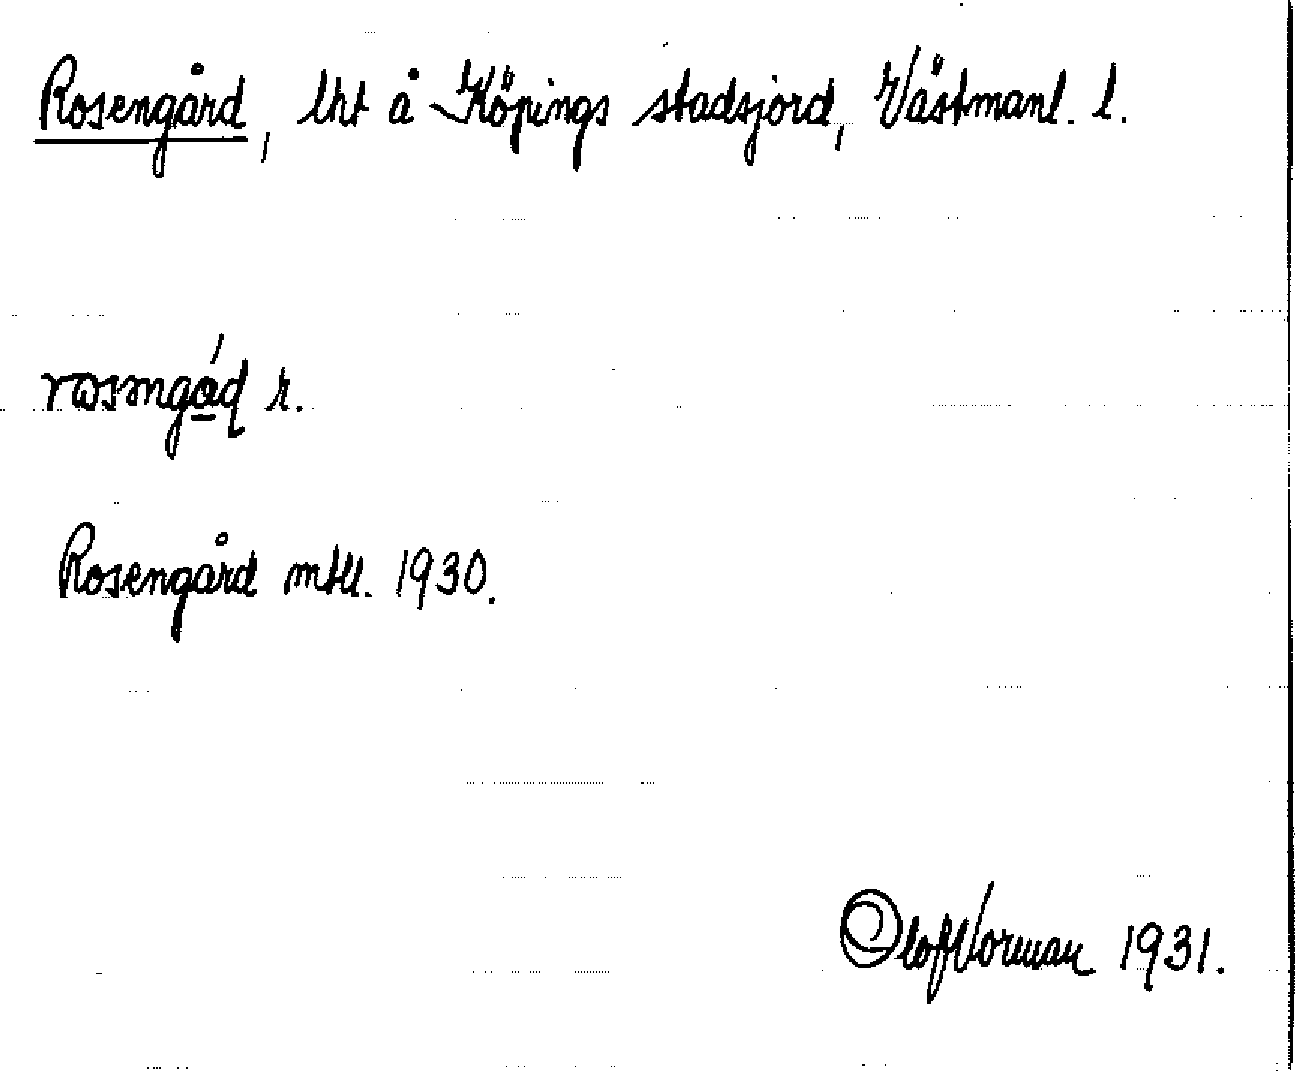 Rosengård, lht å Köpings stadsjord, Västmanl. l.
r.
Rosengård mtll. 1930.
Olof Vorman 1931.